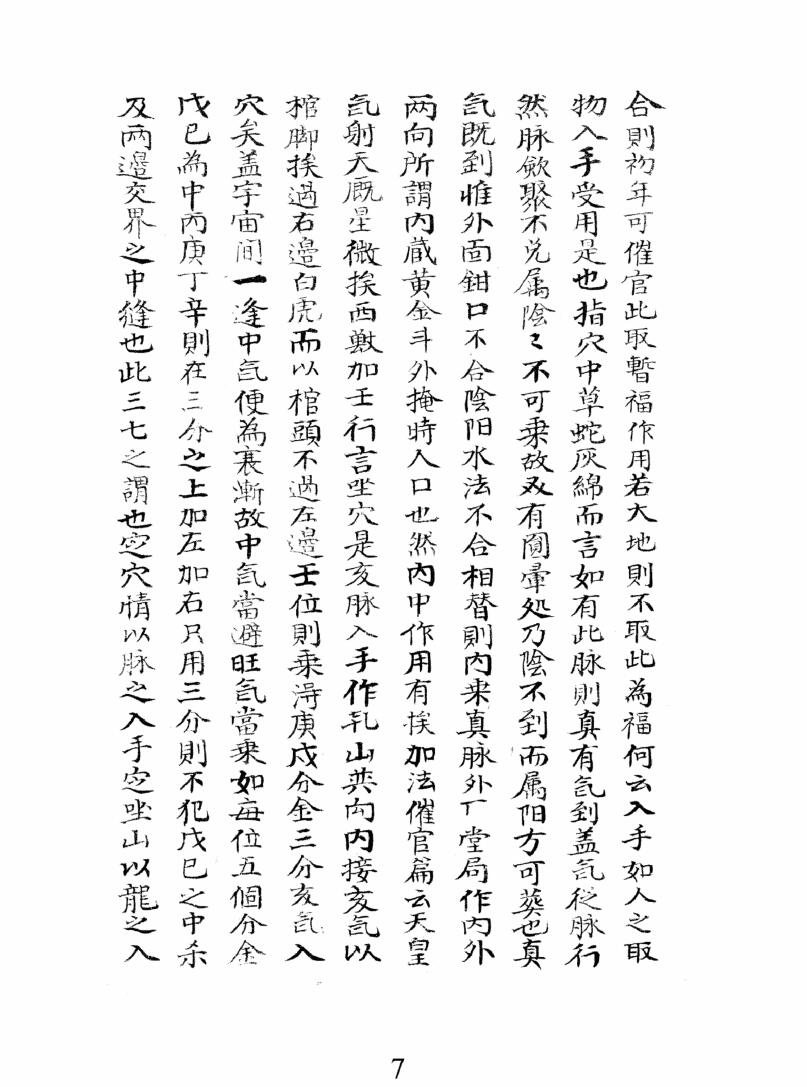 合則初年可催官此取暫福作用若大地則不取此為福何云入手如人之取
物入手受用是也指穴中草蛇灰綿而言如有此脉則真有氣到盖氣從脉行
然脉斂聚不兊属陰〻不可乗故又有圓暈处乃陰不到而属阳方可葬也真
氣既到惟外面鉗口不合陰阳水法不合相替則内乗真脉外丁堂局作内外
两向所謂内蔵黄金斗外掩時人口也然内中作用有挨加法催官篇云天皇
氣射天厩星微挨西獸加壬行言坐穴是亥脉入手作乹山巽向内接亥氣以
棺脚挨過右邉白虎而以棺頭不過左邉壬位則乗淂庚戍分金三分亥氣入
穴矣盖宇宙间一逢中氣便為衰漸故中氣當避旺氣當乗如每位五個分金
戊己為中丙庚丁辛則在三分之上加左加右只用三分則不犯戊己之中杀
及两邉交界之中縫也此三七之謂也定穴情以脉之入手定坐山以龍之入
7